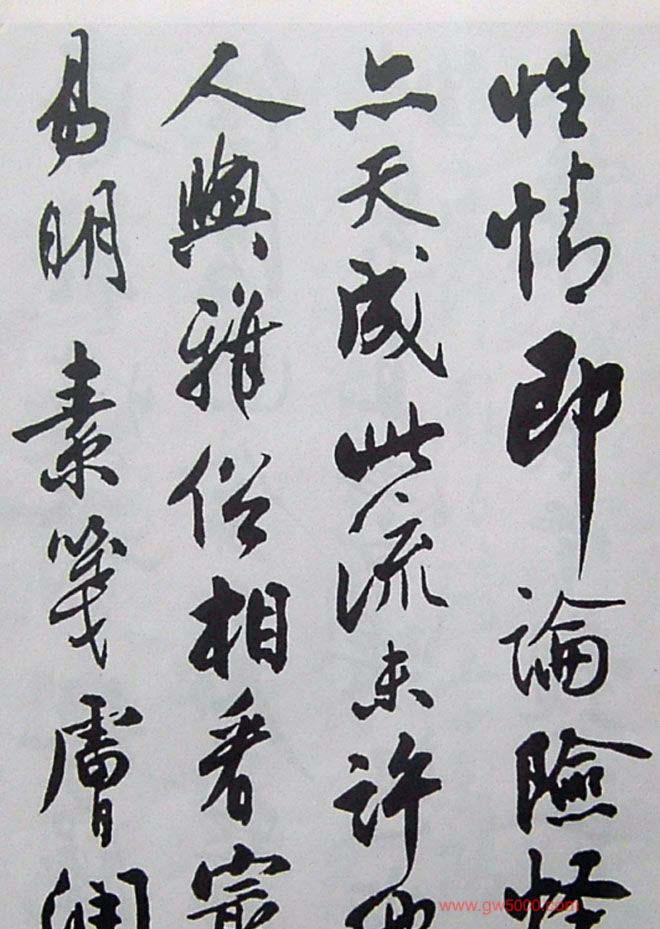 性情即論險怪
亦天成此流未許
人與雅俗相看
易明素箋膚潤
www.gw5000.com